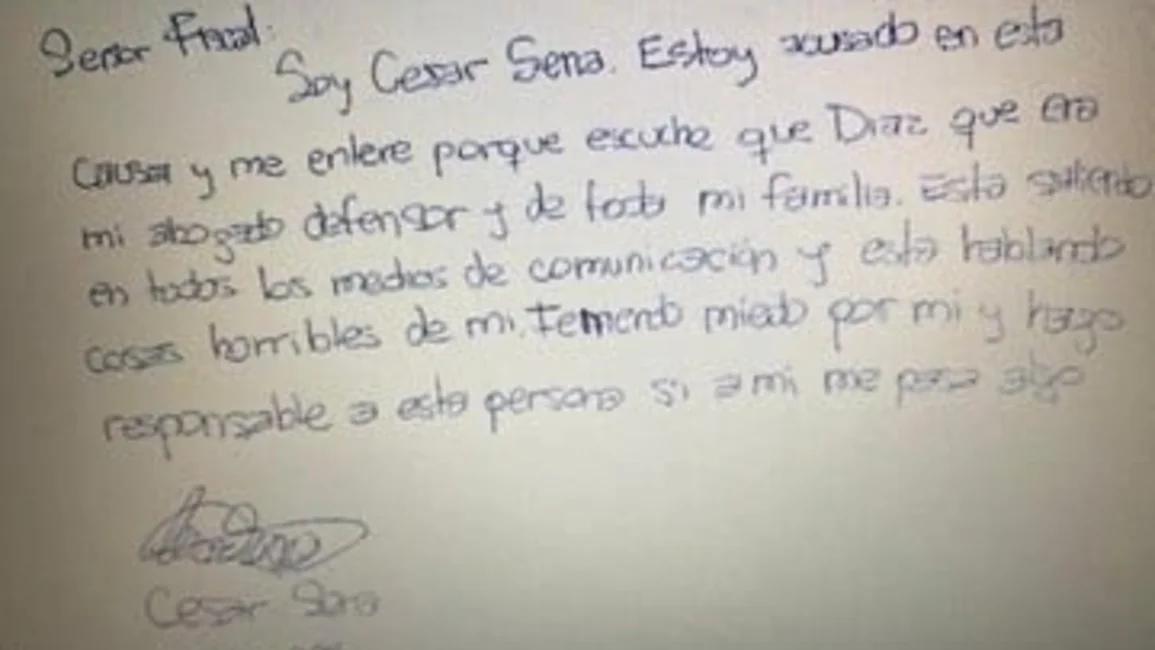 Señor Fiscal:
Soy Cesar Sena. Estoy acusado en esta
causa y me entere porque escuche que Diaz que era
mi abogado defensor y de toda mi familia. Esta saliendo
en todos los medios de comunicación y esta hablando
cosas horribles de mi. Temiendo miedo por mi y hago
responsable a esta persona si a mi me pasa algo
Cesar Sena